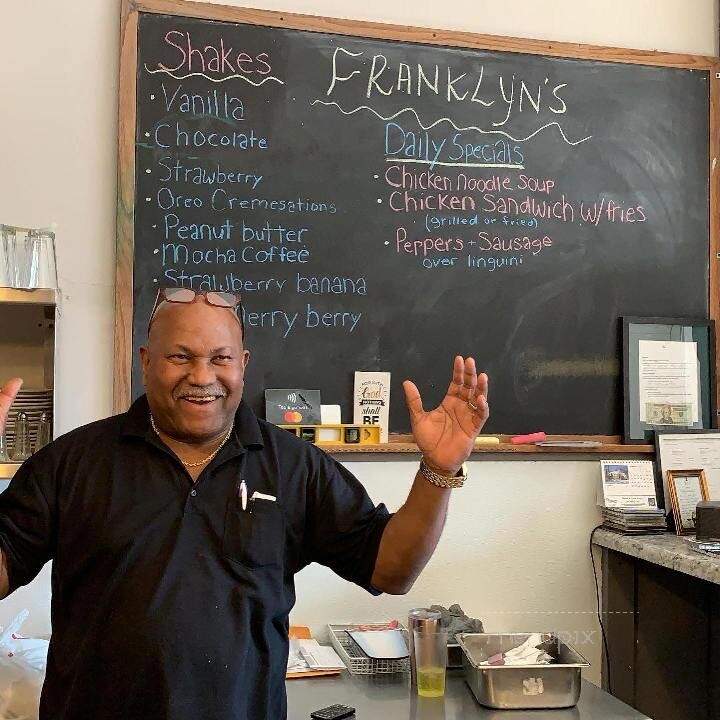 Shakes
• Vanilla
• Chocolate
• Strawberry
• Oreo Cremesations
• Peanut butter
• Mocha Coffee
• Strawberry banana
erry berry
FRANKLYN'S
Daily Specials
• Chicken noodle soup
• Chicken Sandwich w/fries
(grilled or fried)
• Peppers + Sausage
over linguini
God
shall
BE